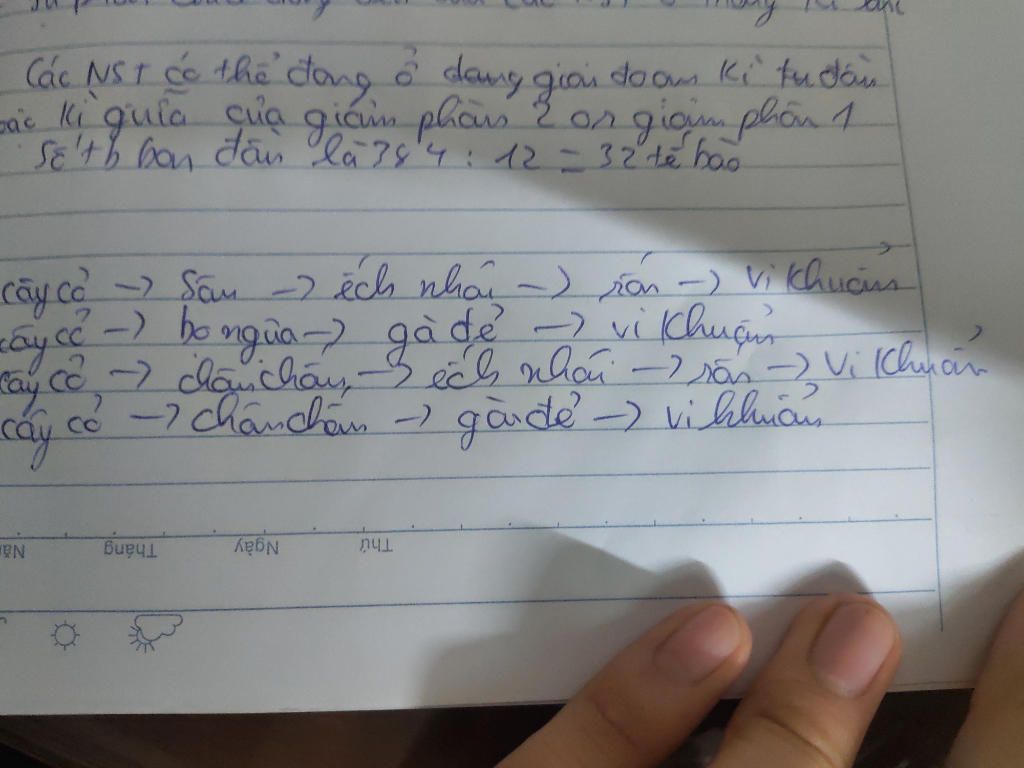 Các NST có thể đang ở dang giai đoan kì tu đầu
kì giữa của giảm phân 2 or giảm phân 1
số tb ban đầu là 384 : 12 = 32 tế bào
cây cỏ -> Sâu -> ếch nhái -> rắn -> vi khuẩn
cây cỏ -> bo ngưa -> gà đẻ -> vi khuẩn
cây cỏ -> châu chấu -> ếch nhái -> rắn -> vi khuẩn
cây cỏ -> châu chấu -> gà đẻ -> vi khuẩn
Thứ Ngày Tháng